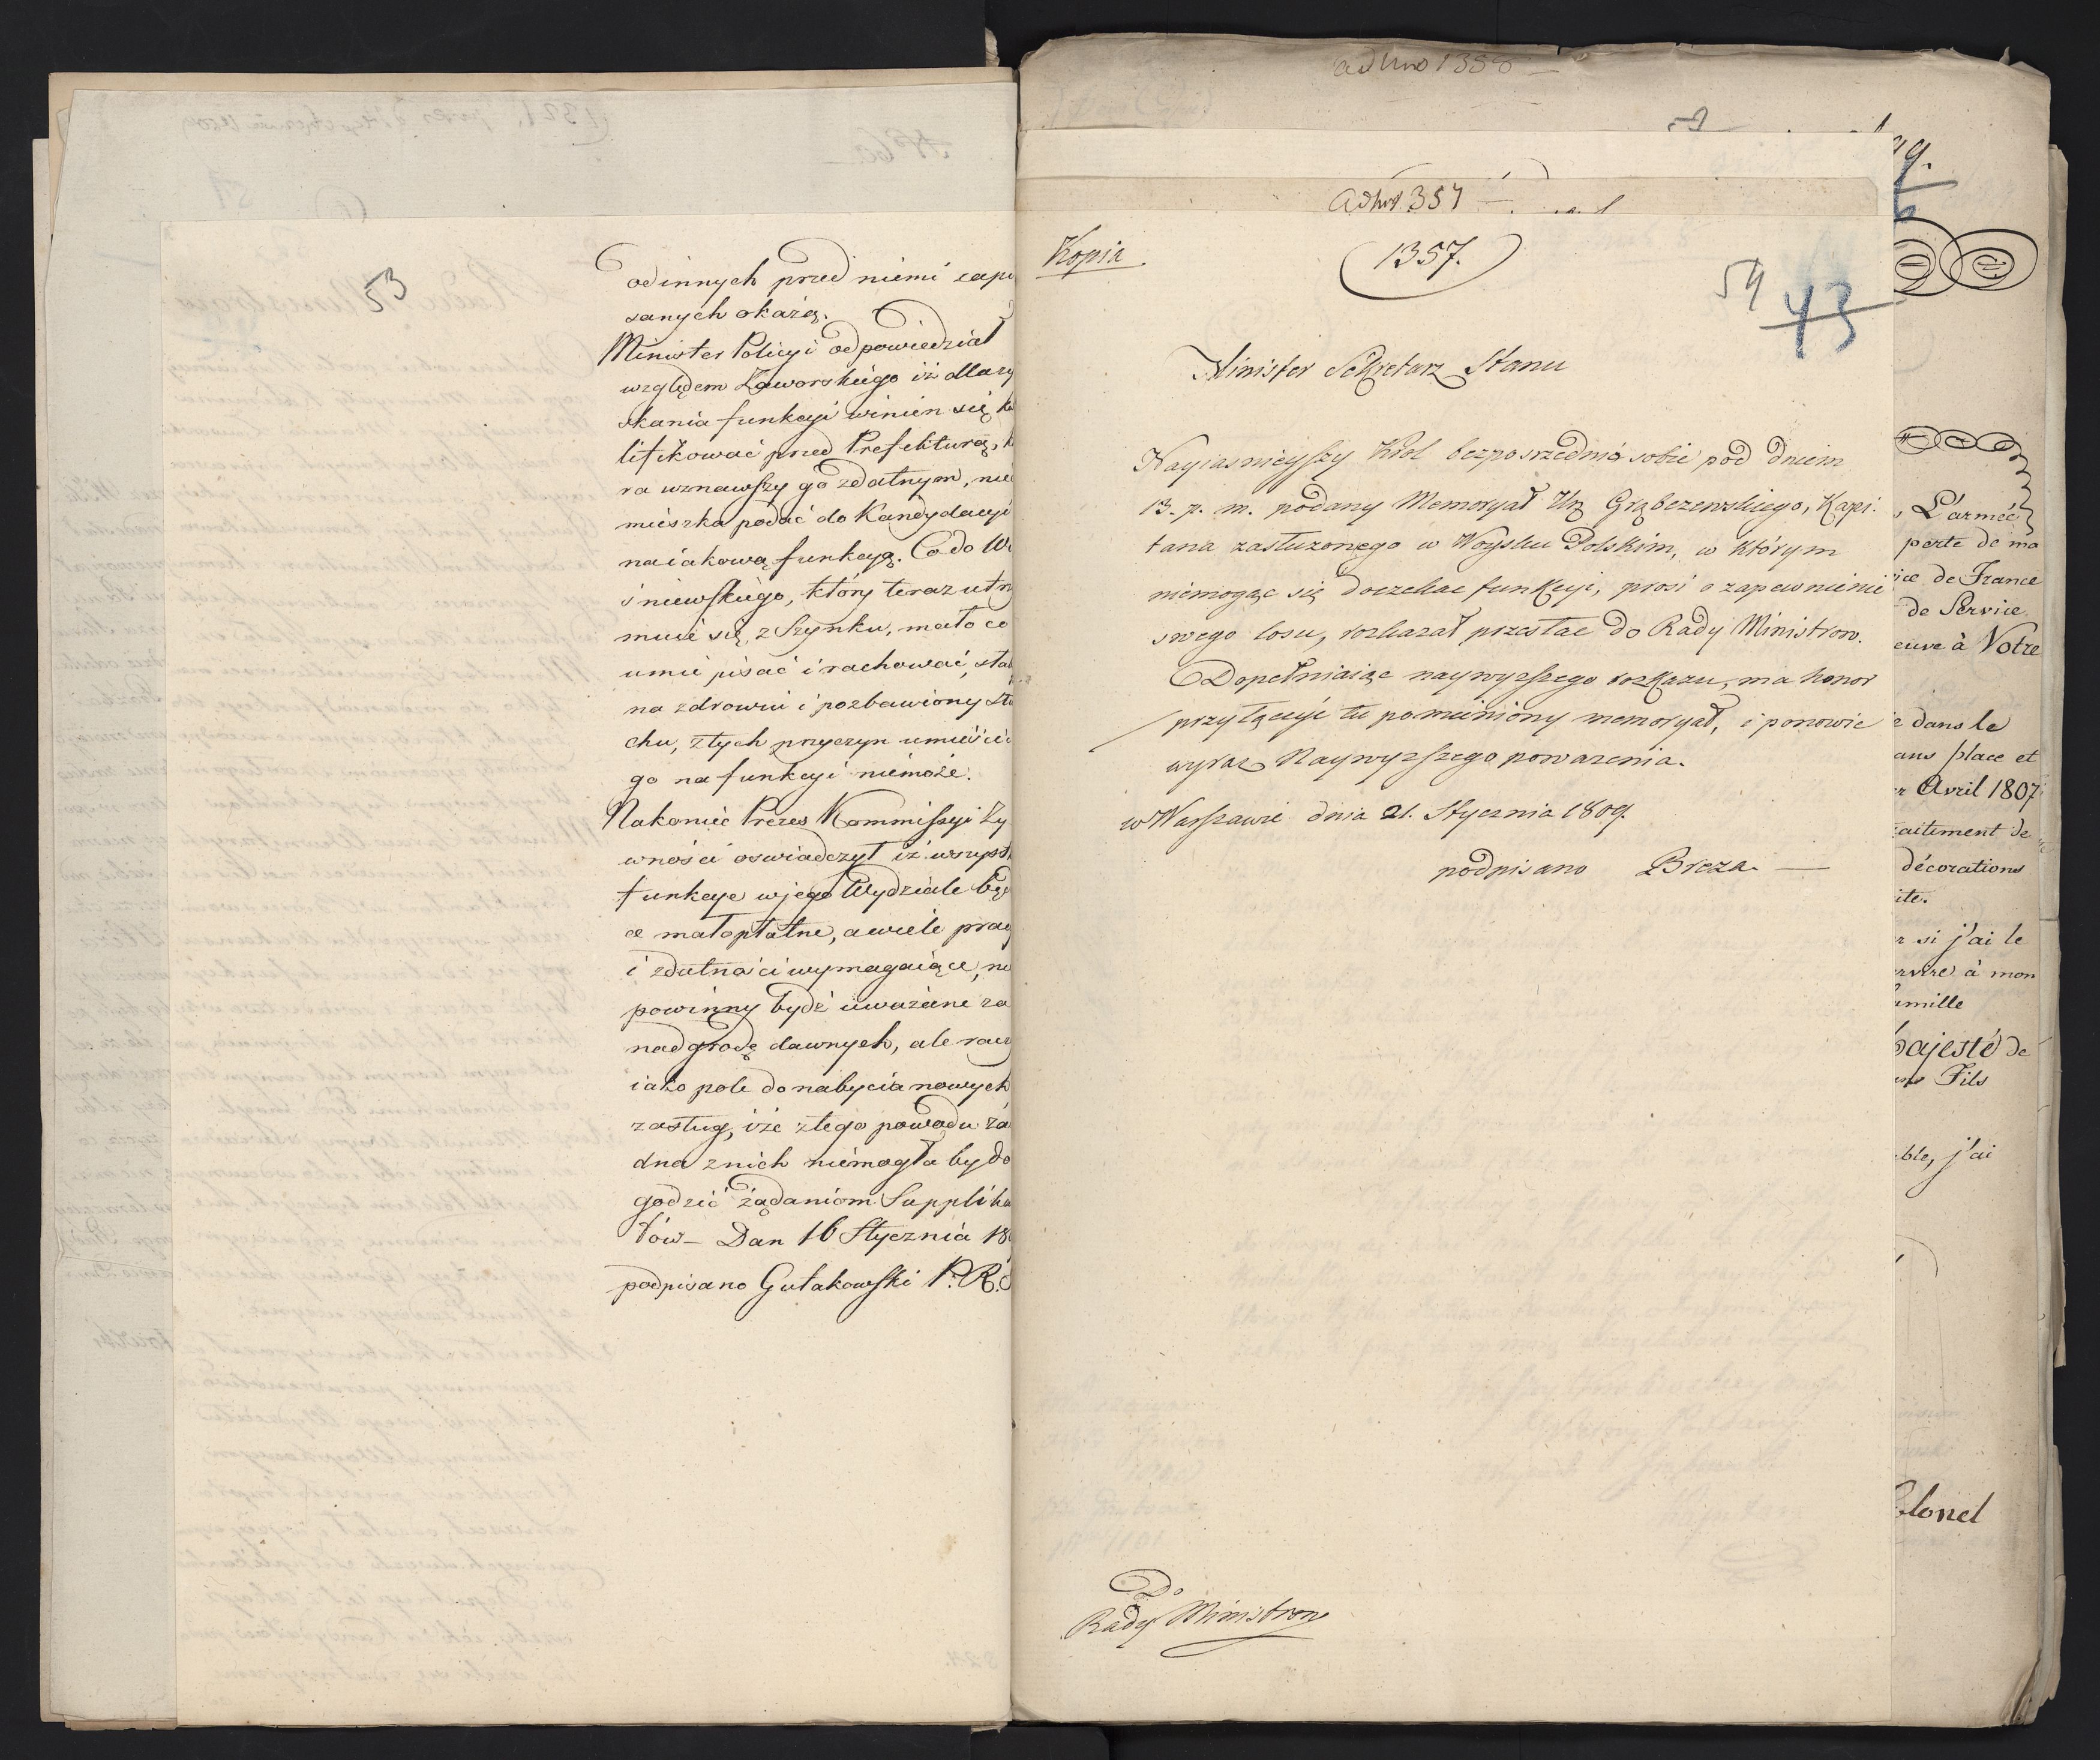 53
od innych przed niemi zapi
sanych okażą.
Minister Policyi odpowiedział
względem Zaworskiego iż dla zy
skania funkcyi winien się kwa
lifikować przed Prefekturą, k
ra uznawszy go zdatnym, nie
mieszka podać do Kandydacyi
na iakową funkcyą. Co do Wi
śniewskiego, który teraz utrzy
muie się z Szynku, mało co
umie pisać i rachować, sła
na zdrowiu i pozbawiony słu
chu, z tych przyczyn umieścić
go na funkcyi niemoże.
Nakoniec Prezes Kommissyi Ży
wności oswiadczył iż wszyst
funkcye w jego Wydziale będ
ce małopłatne, a wiele pracy
i zdatności wymagaiące, nie
powinny bydź uważane za
nadgrodę dawnych, ale racz
iako pole do nabycia nowych
zasług, i że z tego powodu ża
dna z nich niemogła by do
godzić żądaniom Supplika
tów – Dan 16 Stycznia 18
podpisano Gutakowski P. R.
ad Nro 1358 –
ad Nro 1357 –
Kopia
1357.
54
43
Minister Sekretarz Stanu
Nayiasnieyszy Krol bezposrzednio sobie pod dniem
13. p. m. podany Memoryał Ur. Grąbczewskiego, Kapi.
tana zasłuzonego w Woysku Polskim, w którym
niemogąc się doczekac funkcyi, prosi o zapewnienie
swego losu, rozkazał przesłac do Rady Ministrow.
Dopełniaiąc naywyzszego rozkazu, ma honor
przyłączyć tu pomieniony memoryał, i ponowic
wyraz Naywyzszego powazenia.
w Warszawie dnia 21. Stycznia 1809.
podpisano Breza. —
Do
Rady Ministrow
L'armée
perte de ma
ice de France
de Service
euve à Votre
dans le
ans place et
Avril 1807
aitement de
décorations
ite.
si j'ai le
à mon
amille
ajesté de
Fils
ble, j'ai
olonel